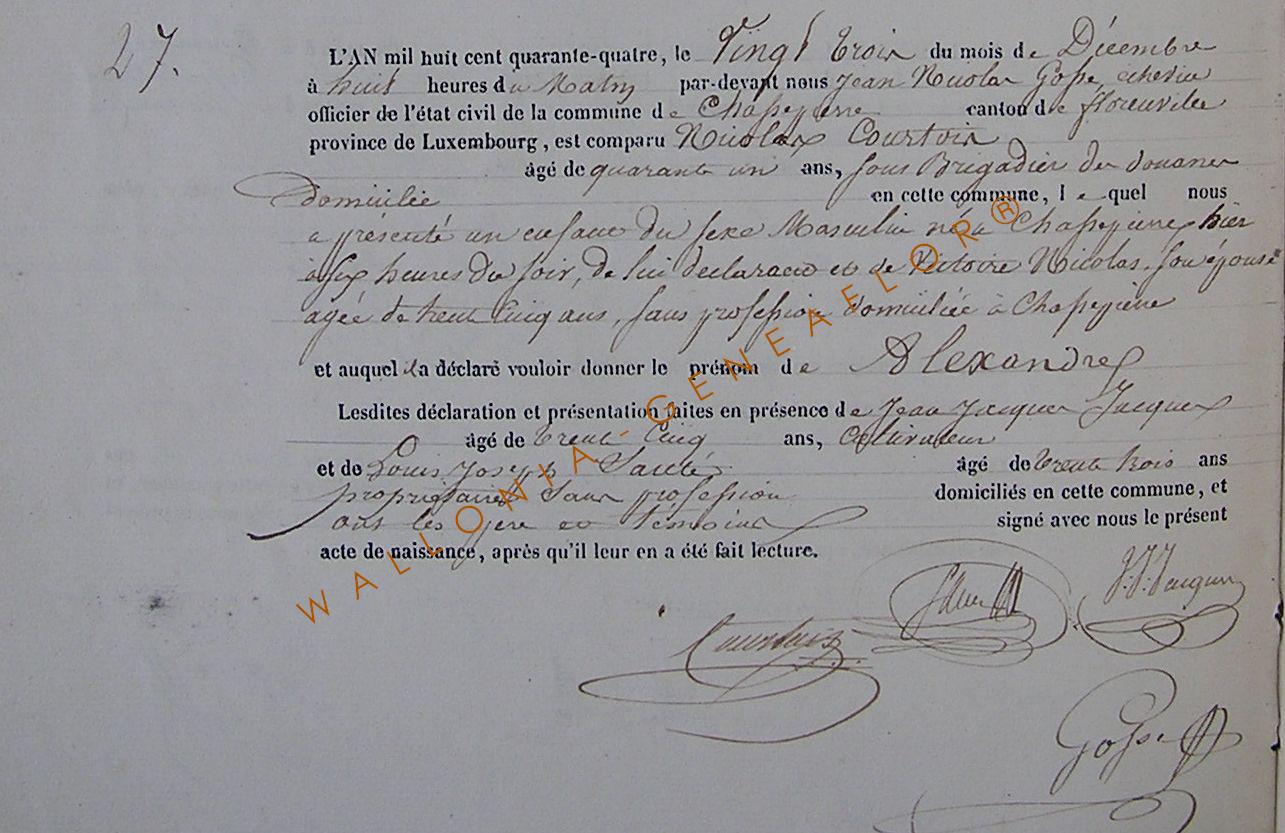 27.
L'AN mil huit cent quarante-quatre, le Vingt trois du mois de Décembre
à huit heures du Matin par-devant nous Jean Nicolas Gosse, échevin
officier de l'état civil de la commune de Chassepierre canton de florenville
province de Luxembourg, est comparu Nicolas Courtois
âgé de quarante un ans, sous Brigadier des douanes
domiciliée en cette commune, lequel nous
a présenté un enfant du sexe Masculin né à Chassepierre hier
à six heures du soir, de lui déclarant et de Victoire Nicolas, son épouse
agée de trente cinq ans, sans profession domiciliée à Chassepierre
et auquel il a déclaré vouloir donner le prénom de Alexandre
Lesdites déclaration et présentation faites en présence de Jean Jacques Jacques
âgé de trente-cinq ans, Cultivateur
et de Louis Joseph âgé de trente trois ans
propriétaire sans profession domiciliés en cette commune, et
ont les père et témoins signé avec nous le présent
acte de naissance, après qu'il leur en a été fait lecture.
J. J. Jacques
Courtois
Gosse
WALLONIA-GENEAELOR®